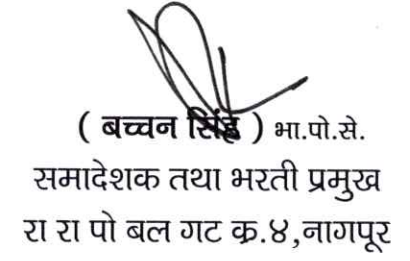 ( बच्चन सिंह ) भा.पो.से.
समादेशक तथा भरती प्रमुख
रा रा पो बल गट क्र.४,नागपूर